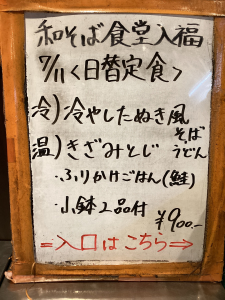 和そば食堂入福
7/11<日替定食>
冷)冷やしたぬき風
温)きざみとじ
そば
うどん
・ふりかけごはん(鮭)
・小鉢2品付
¥900.-
=入口はこちら⇒